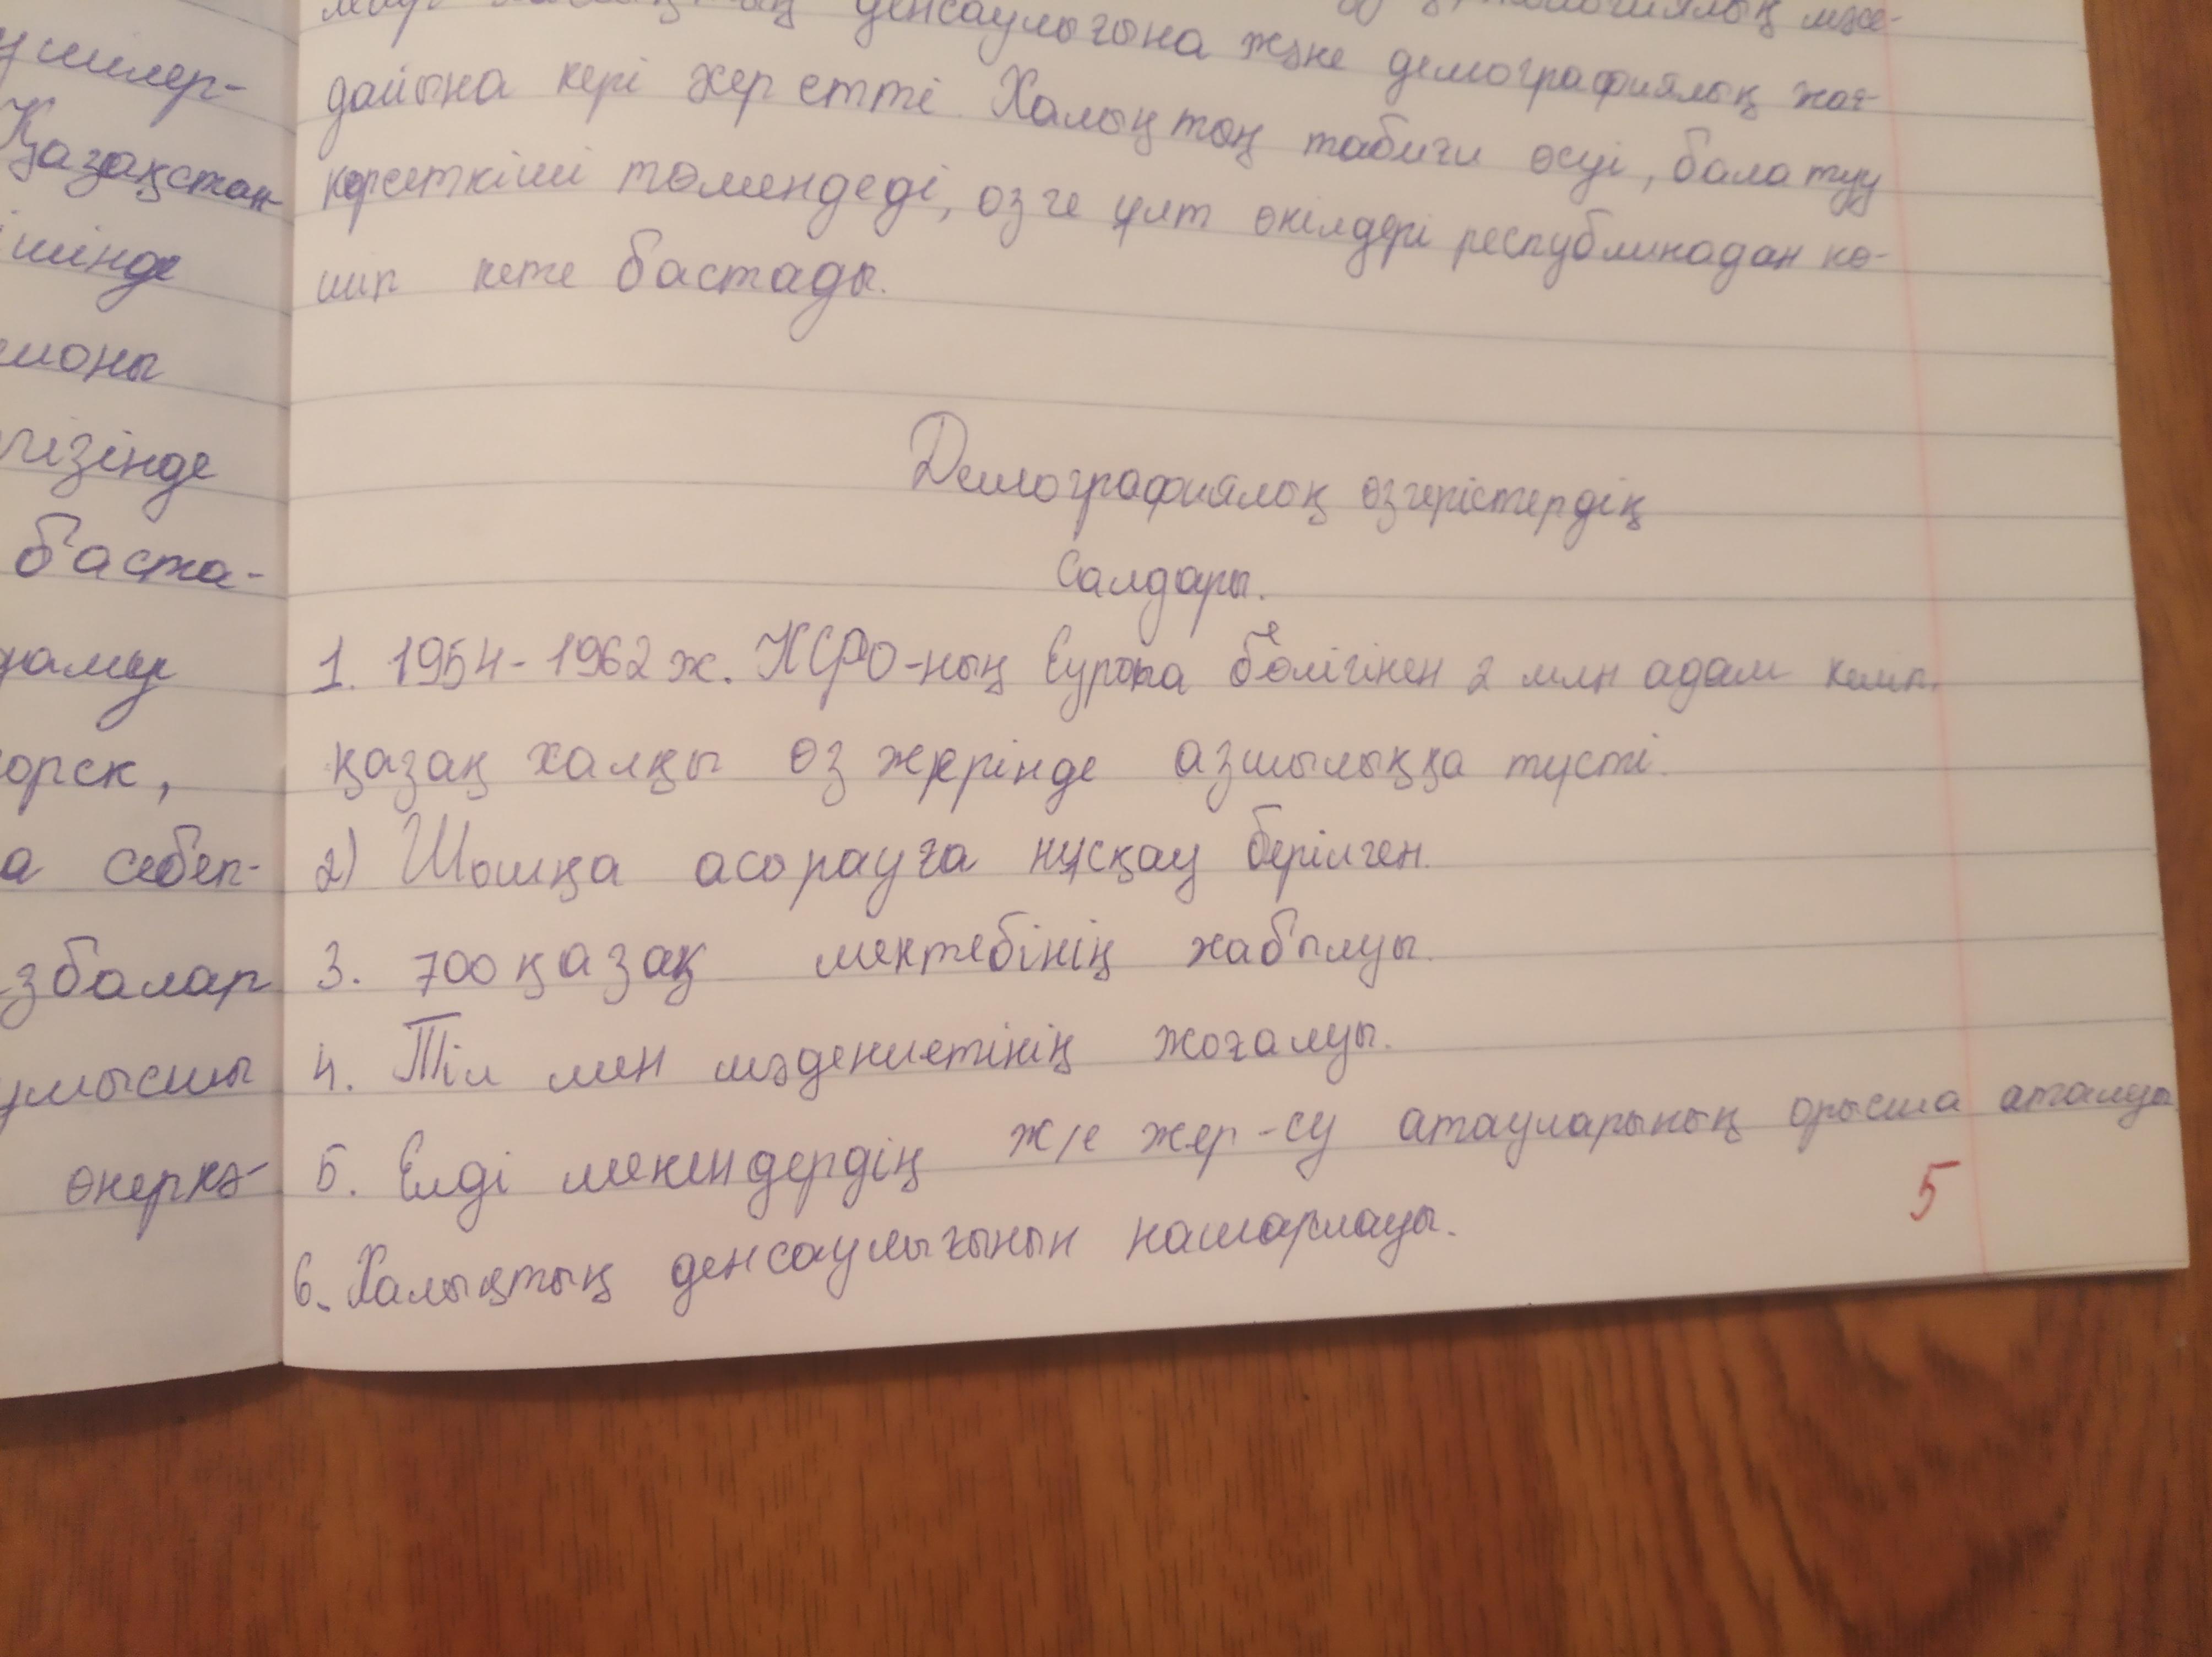 ушілер-
Қазақстан
шінде
моны
гізінде
баста-
дамыр
горск,
а себеп-
збалар
умысшы
өнеркә-
денсаулығына және демографиялық жағ-
дайына кері жер етті. Халықтың табиғи өсуі, бала туу
көрсеткіші төмендеді, өзге ұлт өкілдері республикадан кө-
шип кете бастады.
Демографиялық өзгерістердің
салдары.
1. 1954-1962 ж. КСРО-ның Еуропа бөлігінен 2 млн адам келіп.
қазақ халқы өз жерінде азшылыққа түсті.
2) Шошқа асырауға нұсқау берілген.
3. 700 қазақ мектебінің жабылуы.
4. Тіл мен мәдениетінің жоғалуы.
5. Елді мекендердің ж/е жер-су атауларының орысша аталуы
6. Халықтың денсаулығынын нашарлауы.
5